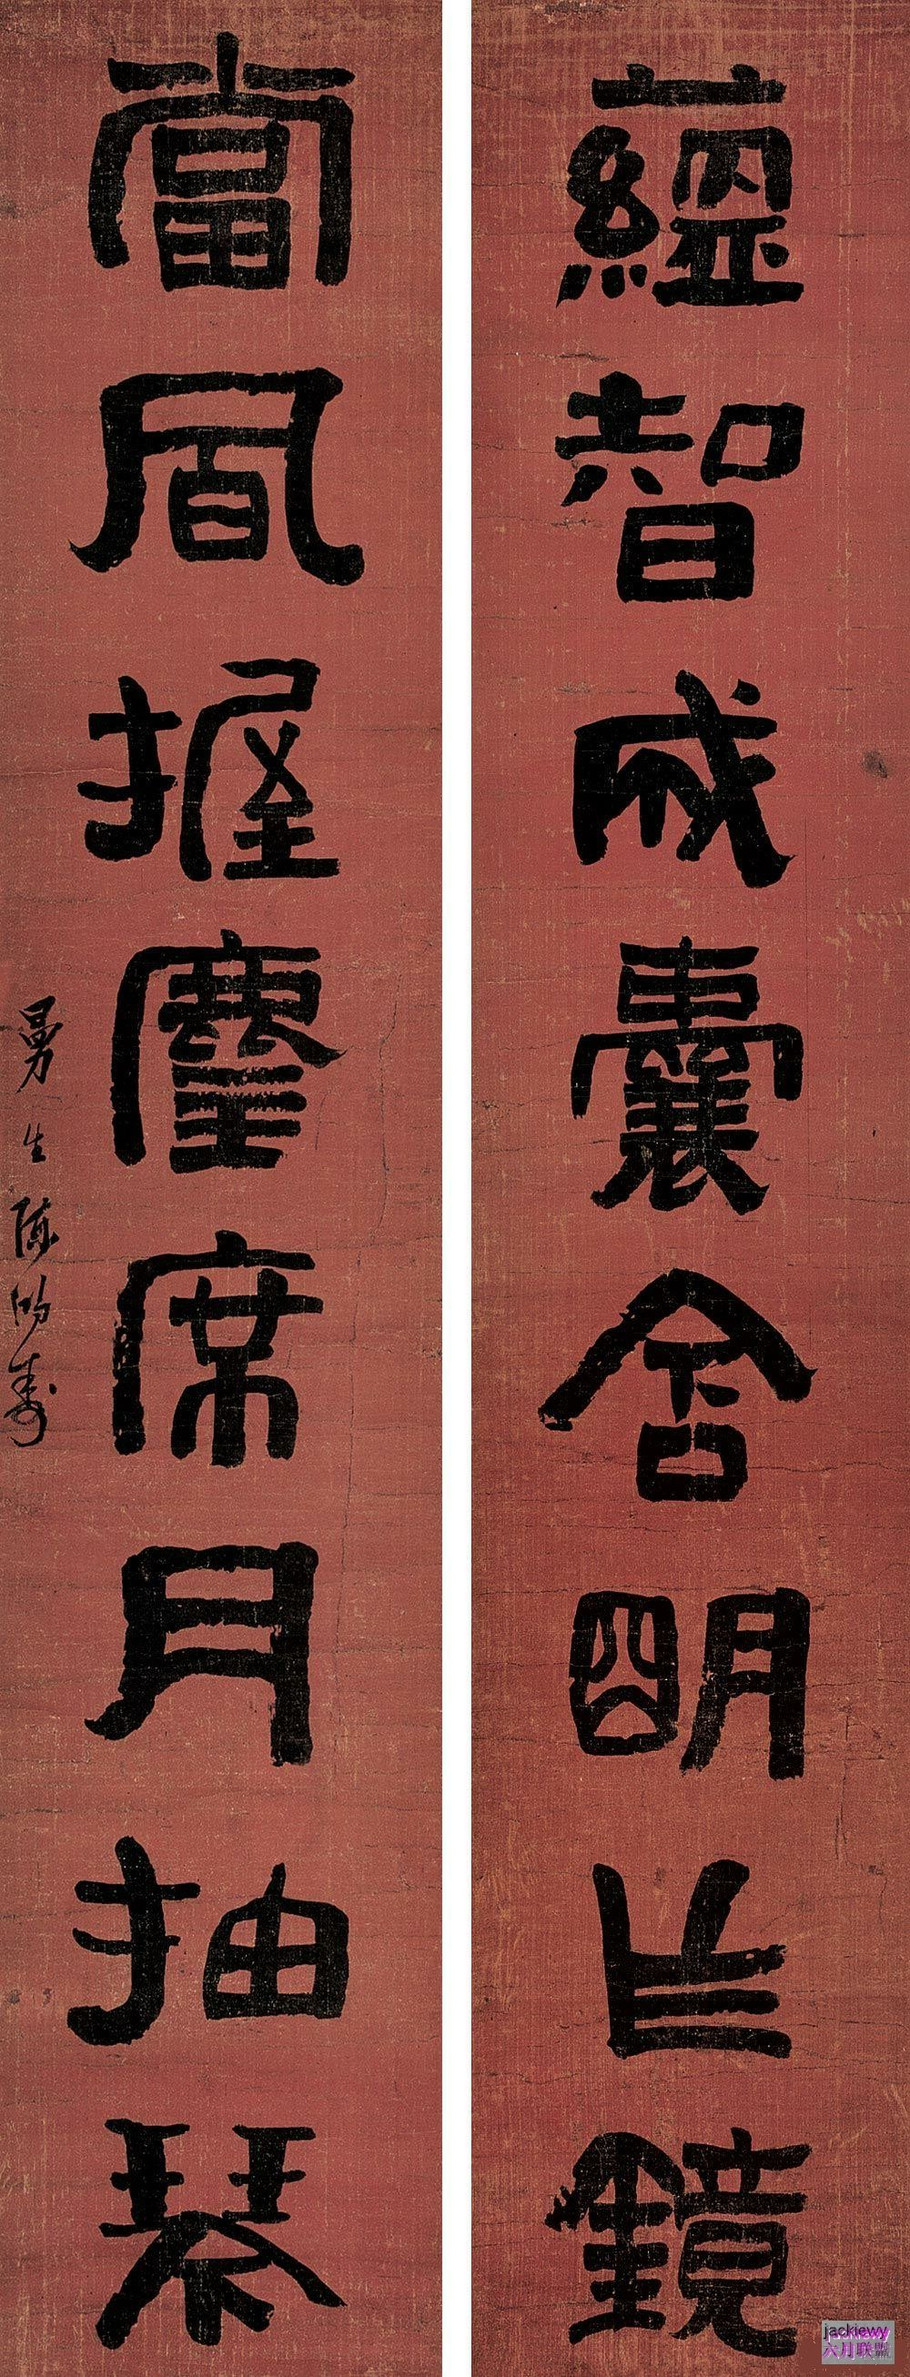 蘊智成囊含明乍鏡
當風握麈席月抽琴
曼生陳鴻壽
jackiewy
六月联盟